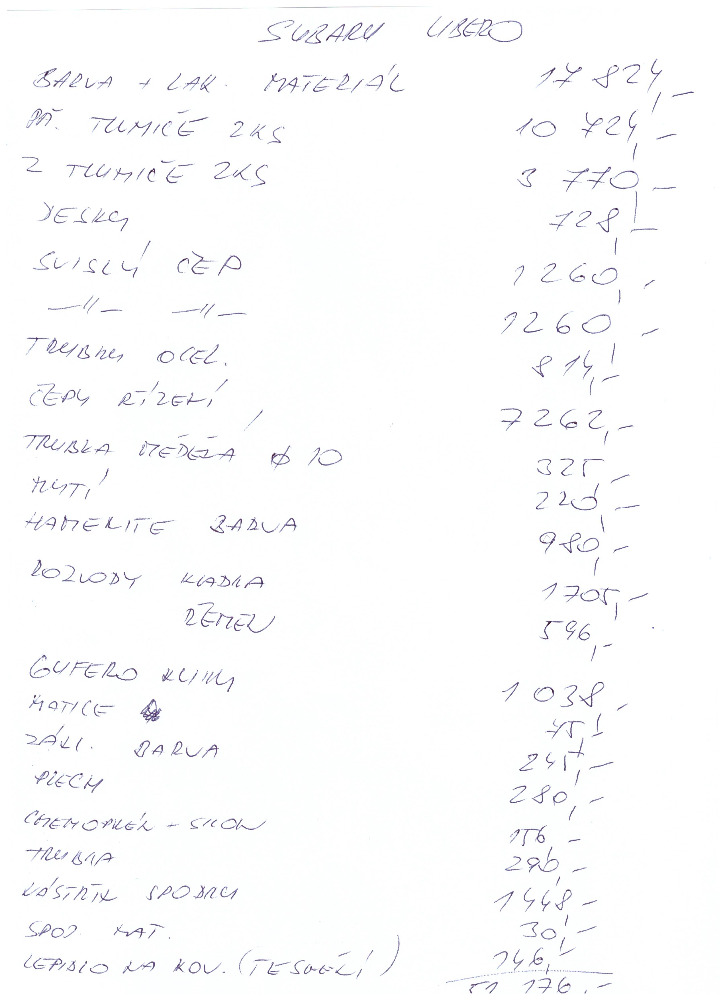 SUBARU LIBERO
BARVA + LAK. MATERIÁL 17 824,-
PŘ. TLUMIČE 2KS 10 724,-
Z TLUMIČE 2KS 3 770,-
DESKY 728,-
SVISLÝ ČEP 1260,-
—"— —"— 1260,-
TRUBKY OCEL. 814,-
ČEPY ŘÍZENÍ 7262,-
TRUBKA MĚDĚNÁ ϕ 10 325,-
NUTÍ 220,-
HAMERITE BARVA 980,-
ROZVODY KLADKA 1705,-
ŘEMEN 596,-
GUFERO KLIKY 1 038,-
MATICE 45,-
ZÁKL. BARVA 245,-
PLECH 280,-
CHEMOPRÉN - SILON 156,-
TRUBKA 290,-
NÁSTŘIK SPODKU 1448,-
SPOJ. MAT. 30,-
LEPIDLO NA KOV. (TESNĚNÍ) 146,-
51 176,-